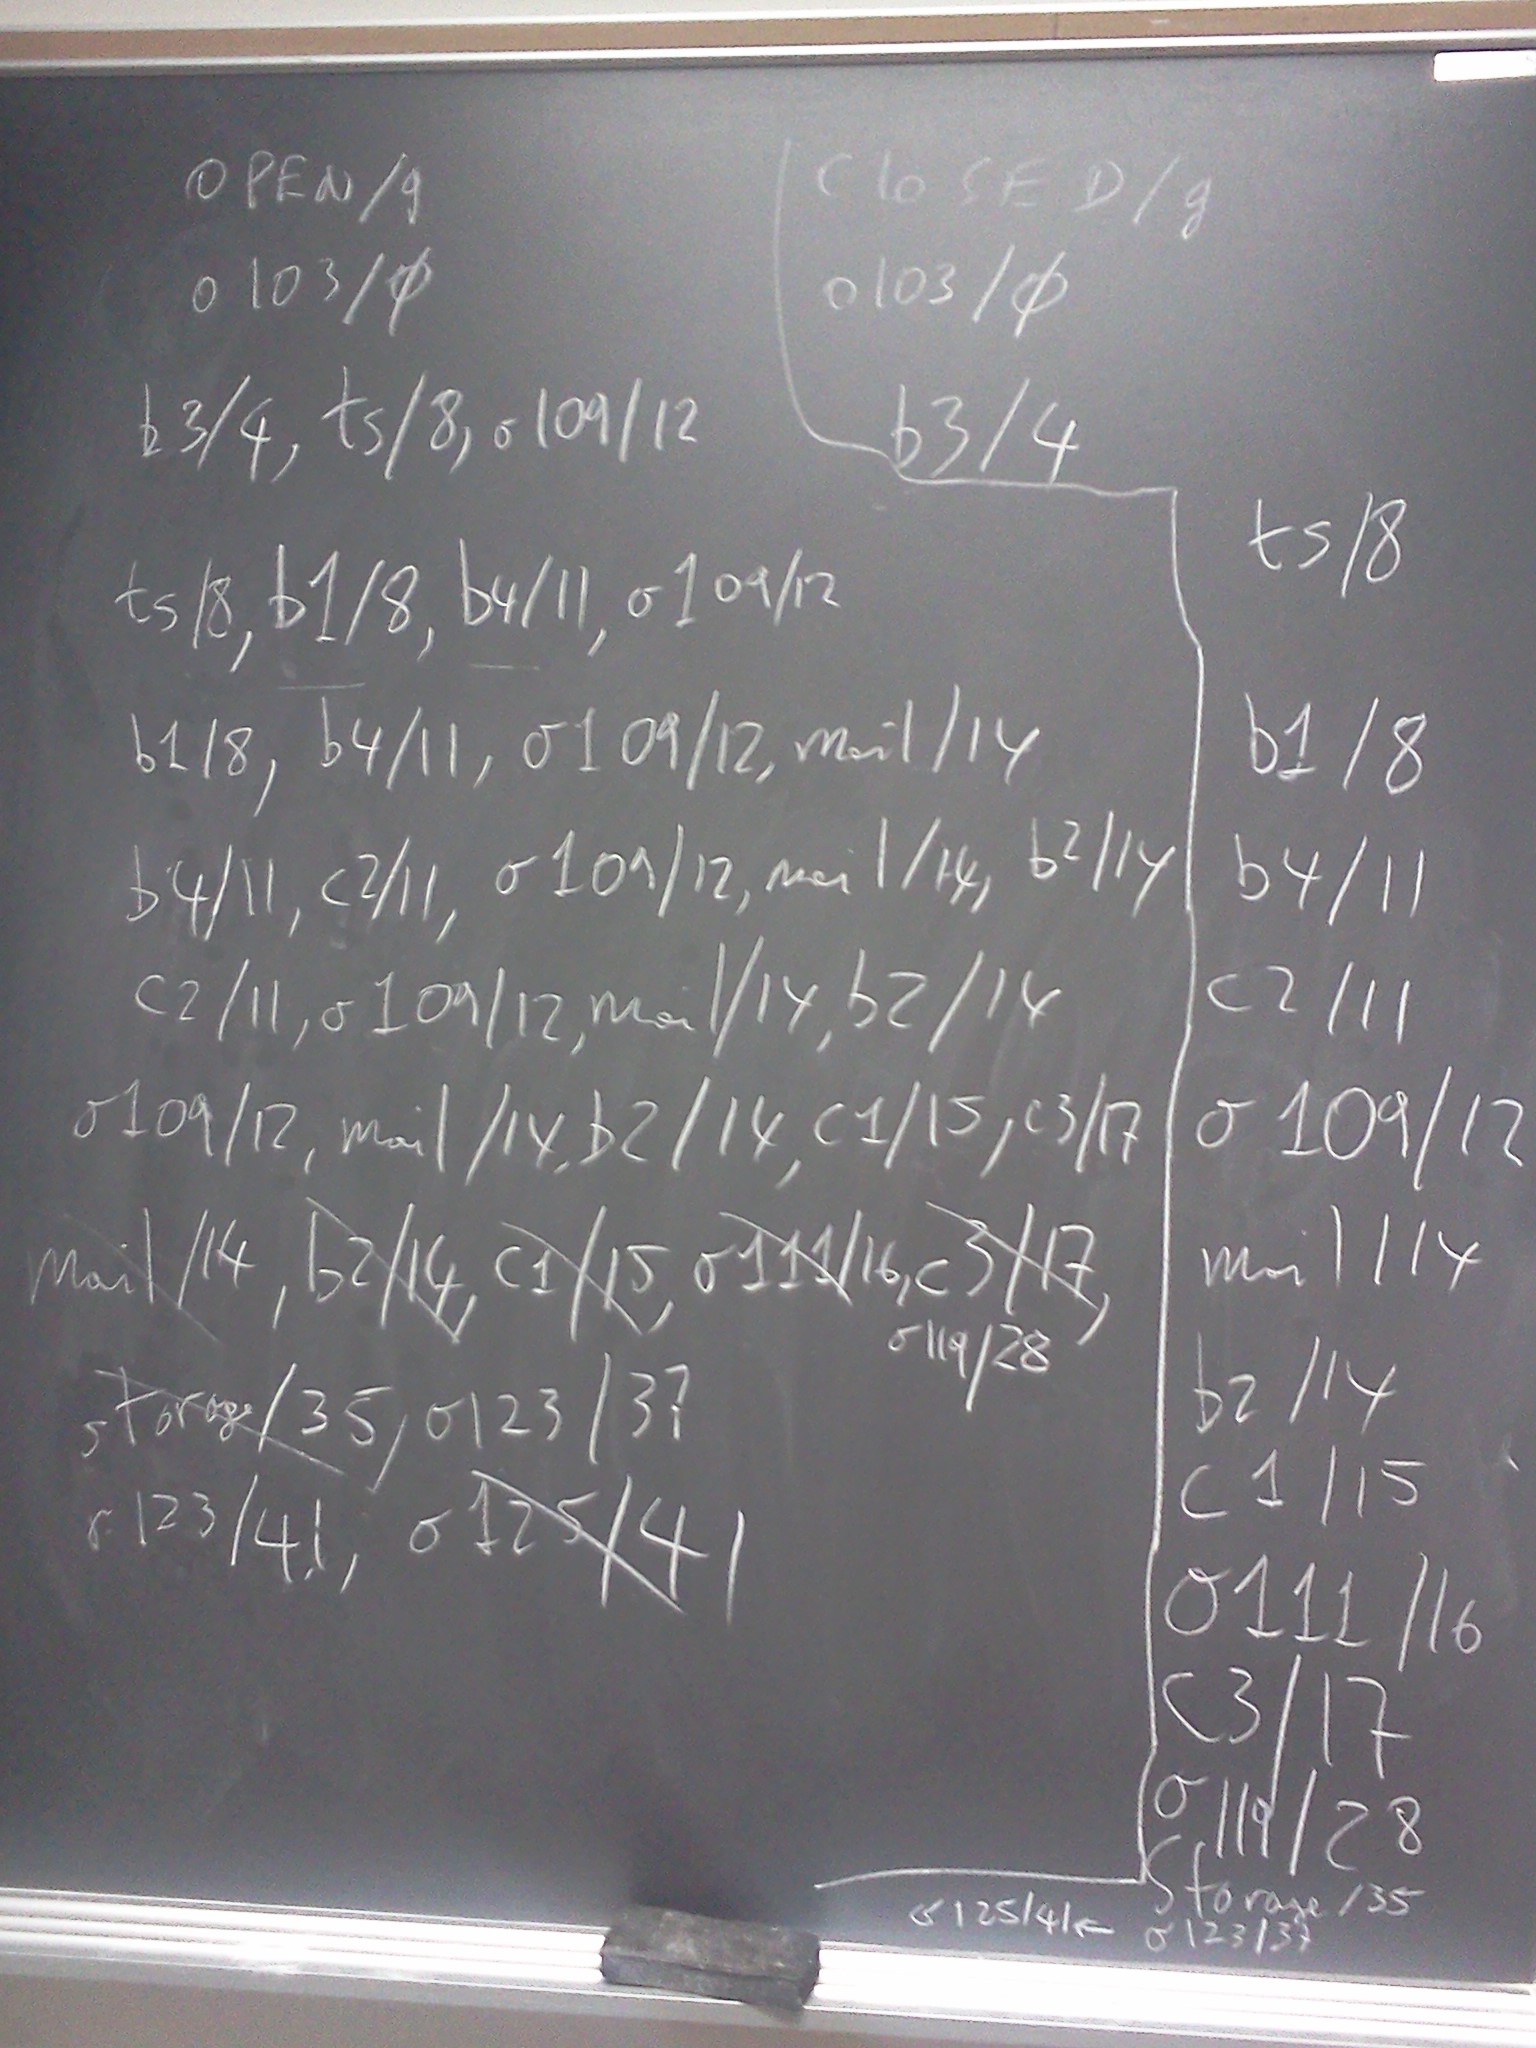 OPEN/g
o103/φ
b3/4, ts/8, o109/12
ts/8, b1/8, b4/11, o109/12
b1/8, b4/11, o109/12, mail/14
b4/11, c2/11, o109/12, mail/14, b2/14
c2/11, o109/12, mail/14, b2/14
o109/12, mail/14, b2/14, c1/15, c3/17
mail/14, b2/14, c1/15, o111/16, c3/17,
o119/28
storage/35, o123/37
r123/41, o125/41
CLOSED/g
o103/φ
b3/4
ts/8
b1/8
b4/11
c2/11
o109/12
mail/14
b2/14
c1/15
o111/16
c3/17
o119/28
Storage/35
o123/37
o125/41←